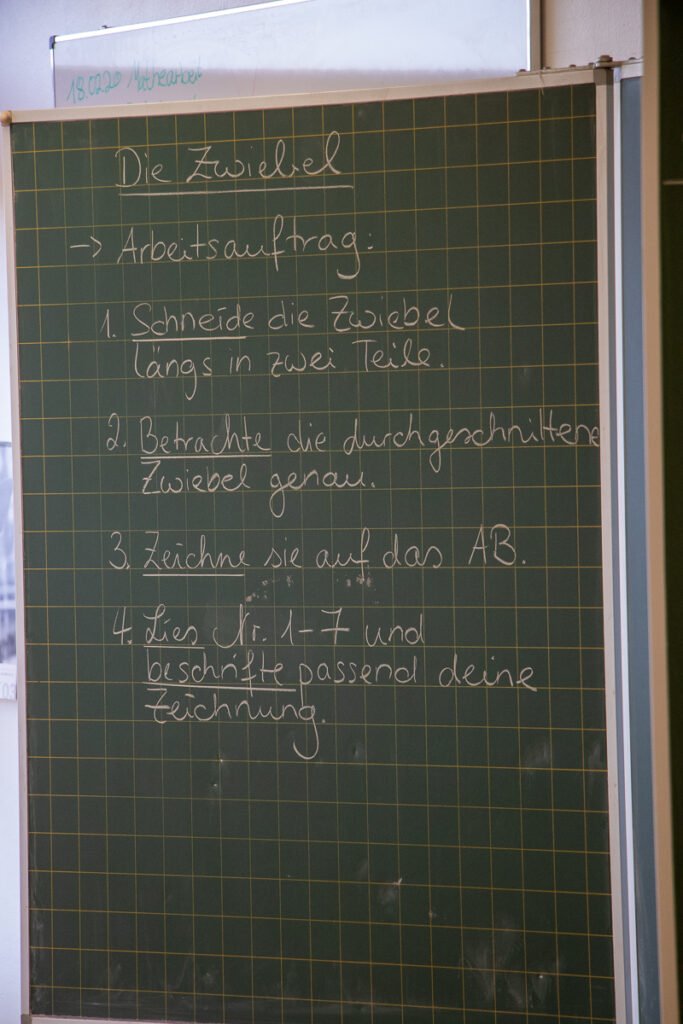 18.02.20 Mathearbeit
Die Zwiebel
-> Arbeitsauftrag:
1. Schneide die Zwiebel
längs in zwei Teile.
2. Betrachte die durchgeschnittene
Zwiebel genau.
3. Zeichne sie auf das AB.
4. Lies Nr. 1-7 und
beschrifte passend deine
Zeichnung.